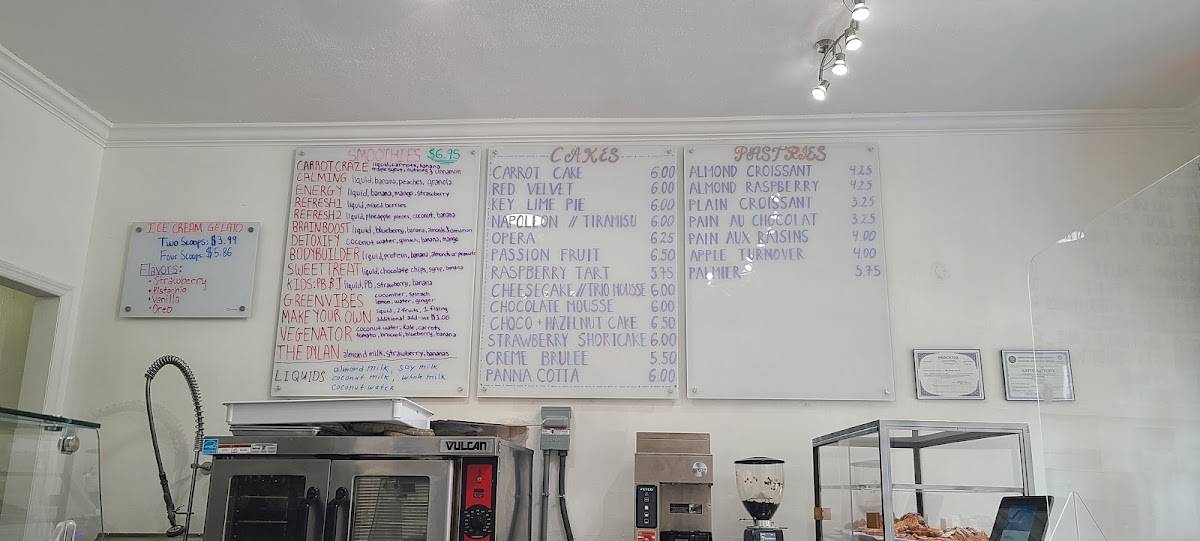 ICE CREAM GELATO
Two Scoops: $3.99
Four Scoops: $5.86
Flavors:
• Strawberry
• Pistachio
• Vanilla
• Oreo
SMOOTHIES $6.95
CARROT CRAZE liquid, carrots, banana
maple syrup, nutmeg & cinnamon
CALMING liquid, banana, peaches, granola
ENERGY liquid, banana, mango, strawberry
REFRESH1 liquid, mixed berries
REFRESH2 liquid, pineapple pieces, coconut, banana
BRAINBOOST liquid, blueberry, banana, almonds & cinnamon
DETOXIFY coconut water, spinach, banana, mango
BODYBUILDER liquid, protein, banana, almond or peanuts
SWEETTREAT liquid, chocolate chips, syrup, banana
KIDS: PB & J liquid, PB, strawberry, banana
GREENVIBES cucumber, spinach
lemon, water, ginger
MAKE YOUR OWN liquid, 2 fruits, 1
additional add-ins $1.00
VEGENATOR coconut water, kale, carrots
tomato, broccoli, blueberry, banana
THE DYLAN almond milk, strawberry, bananas
LIQUIDS almond milk, soy milk
coconut milk, whole milk
coconut water
CAKES
CARROT CAKE 6.00
RED VELVET 6.00
KEY LIME PIE 6.00
NAPOLEON // TIRAMISU 6.00
OPERA 6.25
PASSION FRUIT 6.50
RASPBERRY TART 5.75
CHEESECAKE // TRIO MOUSSE 6.00
CHOCOLATE MOUSSE 6.00
CHOCO + HAZELNUT CAKE 6.50
STRAWBERRY SHORTCAKE 6.00
CREME BRULEE 5.50
PANNA COTTA 6.00
PASTRIES
ALMOND CROISSANT 4.25
ALMOND RASPBERRY 4.25
PLAIN CROISSANT 3.25
PAIN AU CHOCOLAT 3.25
PAIN AUX RAISINS 4.00
APPLE TURNOVER 4.00
PALMIER 3.75
VULCAN